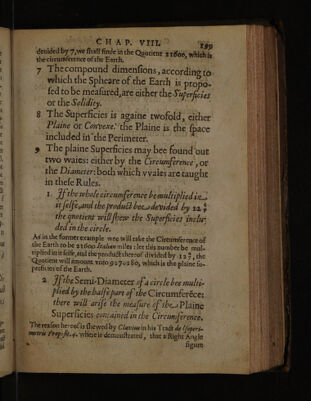 CHAP. VIII. 199
deuided by 7, we shall finde in the Quotient 21600, which is
the circumference of the Earth.
7 The compound dimensions, according to
which the Spheare of the Earth is propo-
sed to be measured, are either the Superficies
or the Solidity.
8 The Superficies is againe twofold, either
Plaine or Convexe: the Plaine is the space
included in the Perimeter.
9 The plaine Superficies may bee found out
two waies: either by the Circumference, or
the Diameter: both which vvaies are taught
in these Rules.
1. If the whole circumference be multiplied in-
it selfe, and the product bee devided by 12 4/7
the quotient will shew the Superficies inclu-
ded in the circle.
As in the former example wee will take the Circumference of
the Earth to be 21600 Italian miles: let this number be mul-
tiplied in it selfe, and the product thereof divided by 12 4/7, the
Quotient will amount, which is the plaine su-
perficies of the Earth.
2 If the Semi-Diameter of a circle bee multi-
plied by the halfe part of the Circumference:
there will arise the measure of the Plaine
Superficies contained in the Circumference.
The reason hereof is shewed by Clavius in his Tract de Isoperi-
metris Propos. 4. where is demonstrated, that a Right Angle
figure